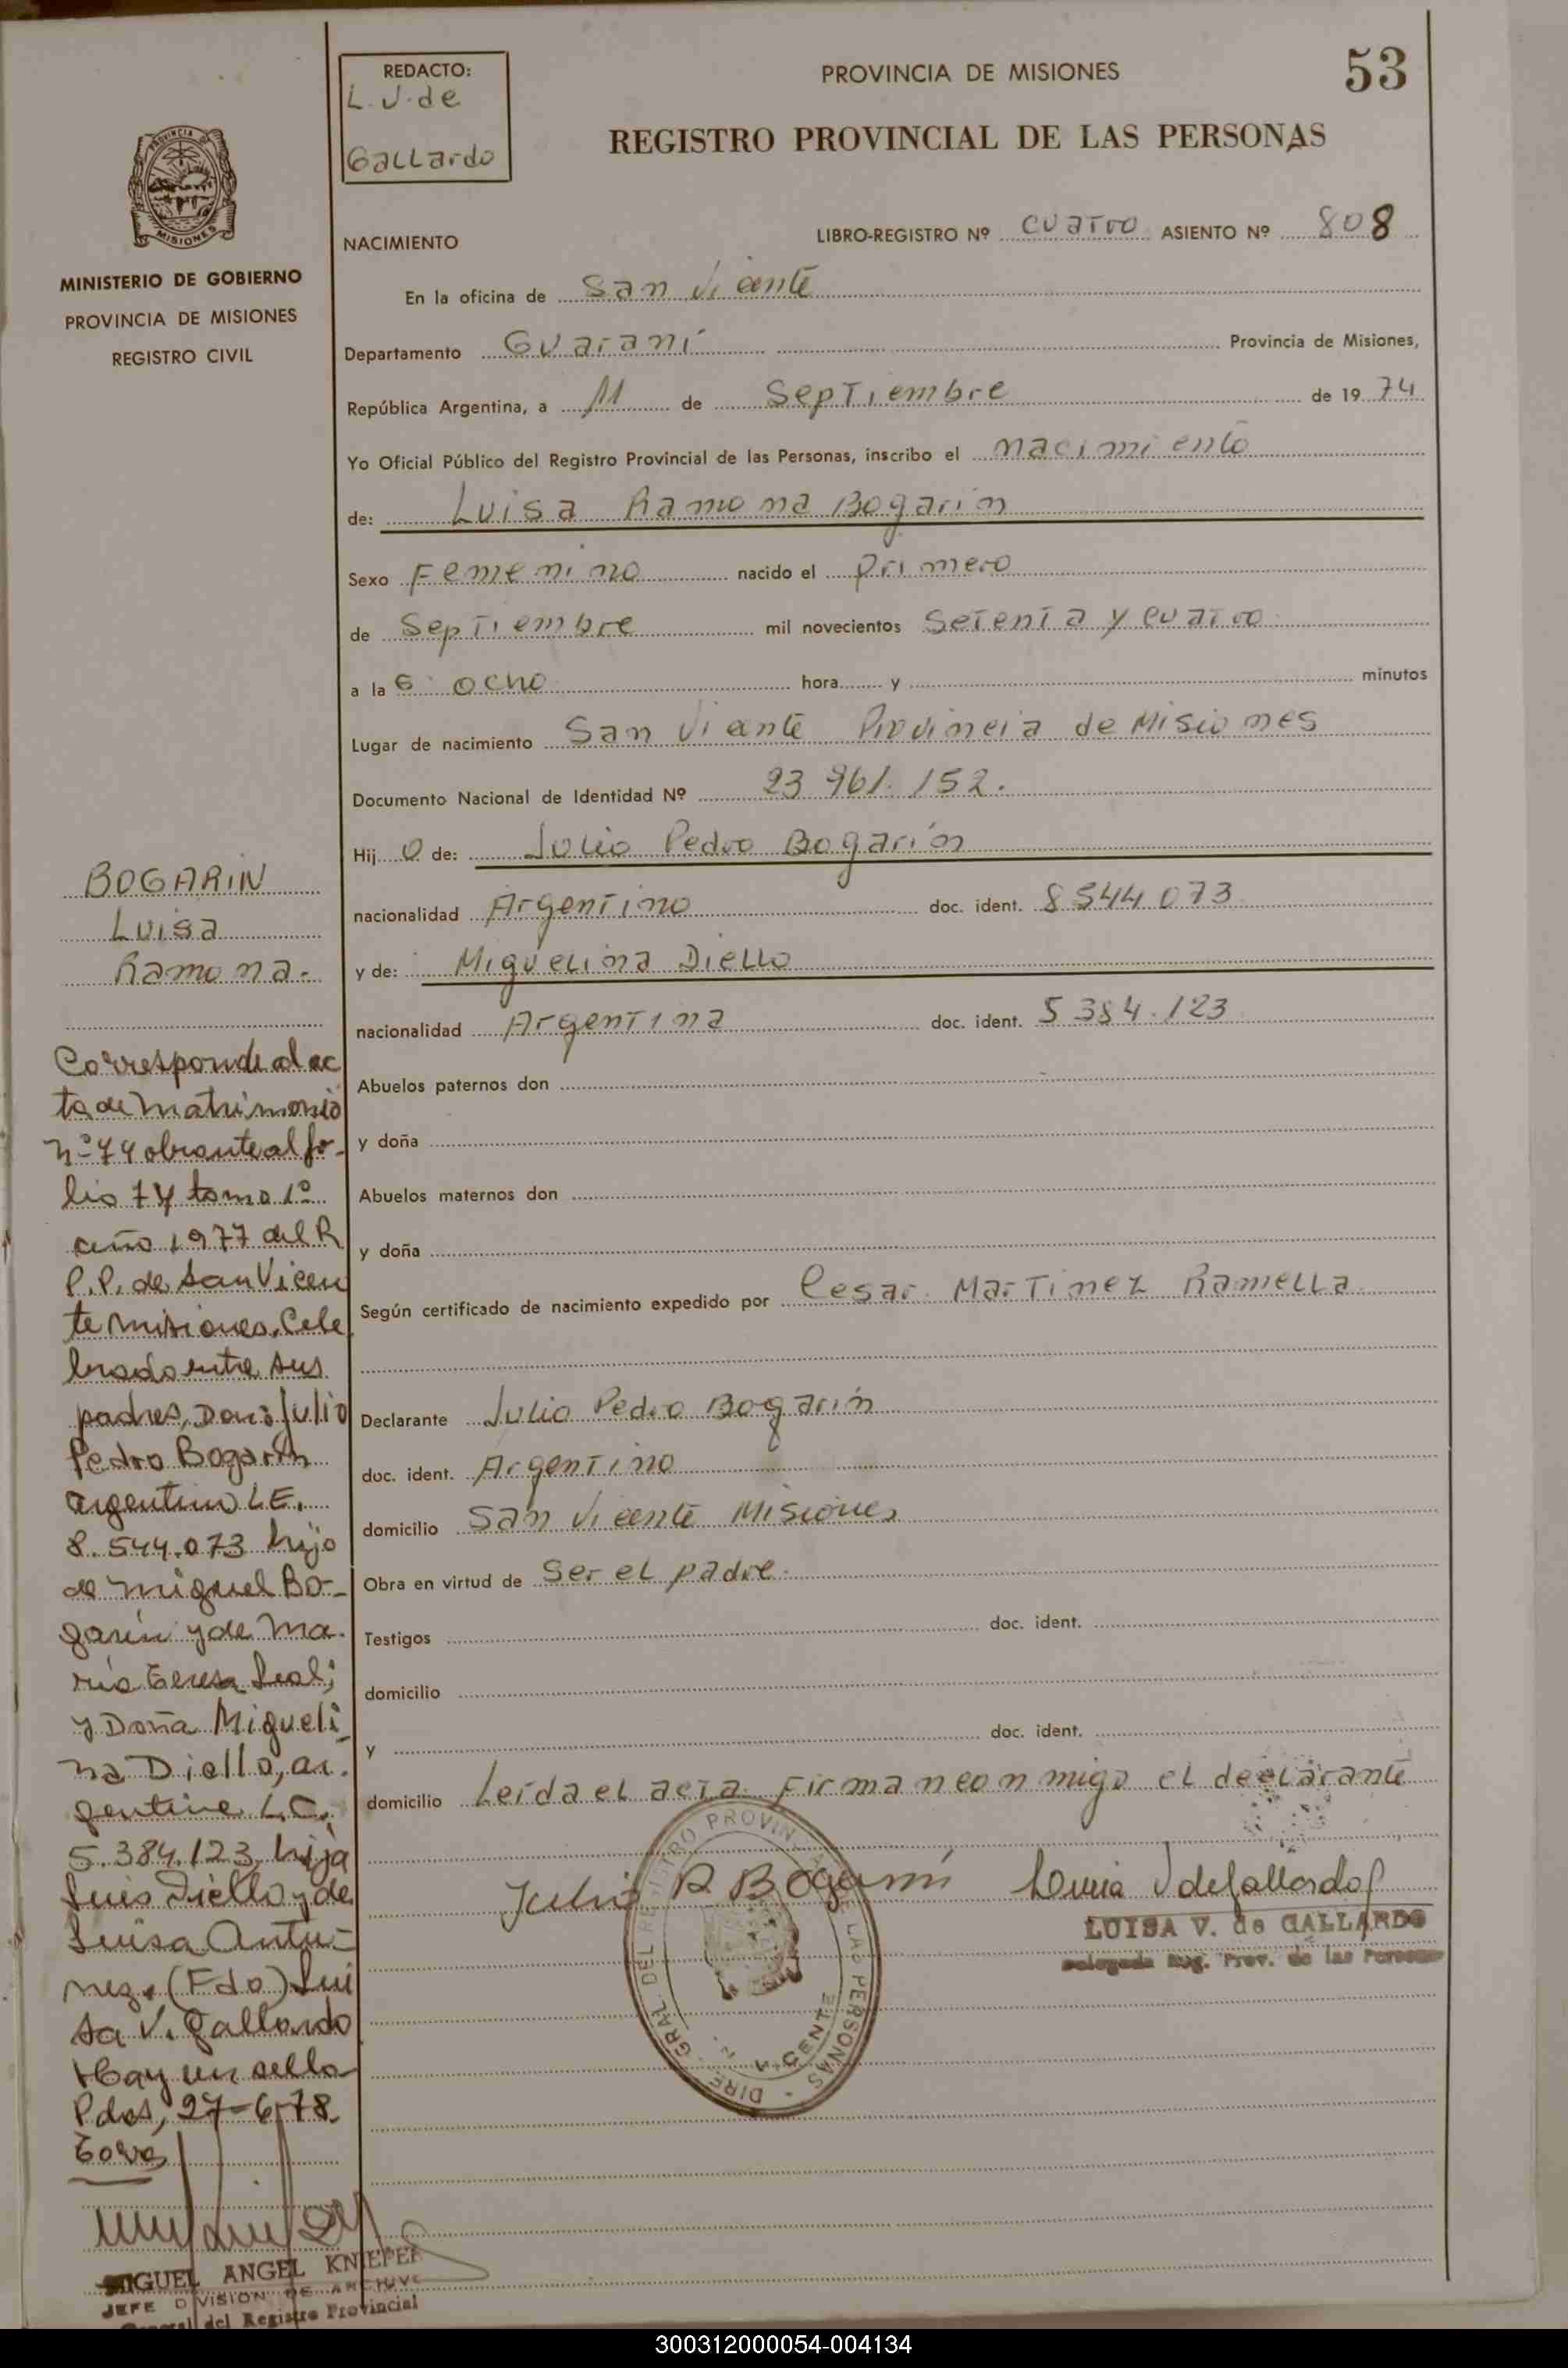 53
REDACTO:
L. V. de
Gallardo
PROVINCIA DE MISIONES
REGISTRO PROVINCIAL DE LAS PERSONAS
PROVINCIA DE
MISIONES
MINISTERIO DE GOBIERNO
PROVINCIA DE MISIONES
REGISTRO CIVIL
NACIMIENTO
LIBRO-REGISTRO Nº cuatro ASIENTO Nº 808
En la oficina de San Vicente
Departamento Guaraní Provincia de Misiones,
República Argentina, a 11 de Septiembre de 19 74
Yo Oficial Público del Registro Provincial de las Personas, inscribo el nacimiento
de: Luisa Ramona Bogarín
Sexo Femenino nacido el primero
de Septiembre mil novecientos Setenta y cuatro
a la s ocho hora y minutos
Lugar de nacimiento San Vicente Provincia de Misiones
Documento Nacional de Identidad Nº 23 961. 152.
Hij o de: Julio Pedro Bogarín
nacionalidad Argentino doc. ident. 8 544 073
y de: Miguelina Diello
nacionalidad Argentina doc. ident. 5 384. 123
Abuelos paternos don
y doña
Abuelos maternos don
y doña
Según certificado de nacimiento expedido por Cesar Martinez Ramella
Declarante Julio Pedro Bogarín
doc. ident. Argentino
domicilio San Vicente Misiones
Obra en virtud de Ser el padre.
Testigos doc. ident.
domicilio
y doc. ident.
domicilio Leída el acta Firman conmigo el declarante
Julio P Bogarin
Luisa V de Gallardo
LUISA V. de GALLARDO
Delegada Reg. Prov. de las Personas
DIREC. GRAL. DEL REGISTRO PROVINCIAL DE LAS PERSONAS
BOGARIN
Luisa
Ramona.-
Corresponde al ac
ta de matrimonio
nº 74 obrante al fo-
lio 74 tomo 1º
año 1977 del R
P.P. de San Vicen
te Misiones. Cele
brado entre sus
padres, Don: Julio
Pedro Bogarín
argentino L.E.
8.544.073 hijo
de Miguel Bo-
garín y de Ma.
ría Teresa Leal;
y Doña Migueli
na Diello, ar.
gentina L.C.
5.384.123, hija
Luis Diello y de
Luisa Antu-
nez. (Fdo) Lui
sa V. Gallardo
Hay un sello
Pdas, 27-6-78.
MIGUEL ANGEL KNIEPER
JEFE DIVISION DE ARCHIVO
General del Registro Provincial
300312000054-004134